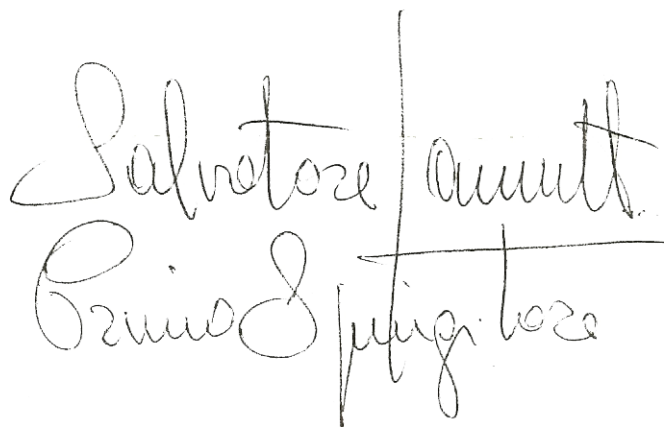 Salvatore Iannutti
Primo Spingitore